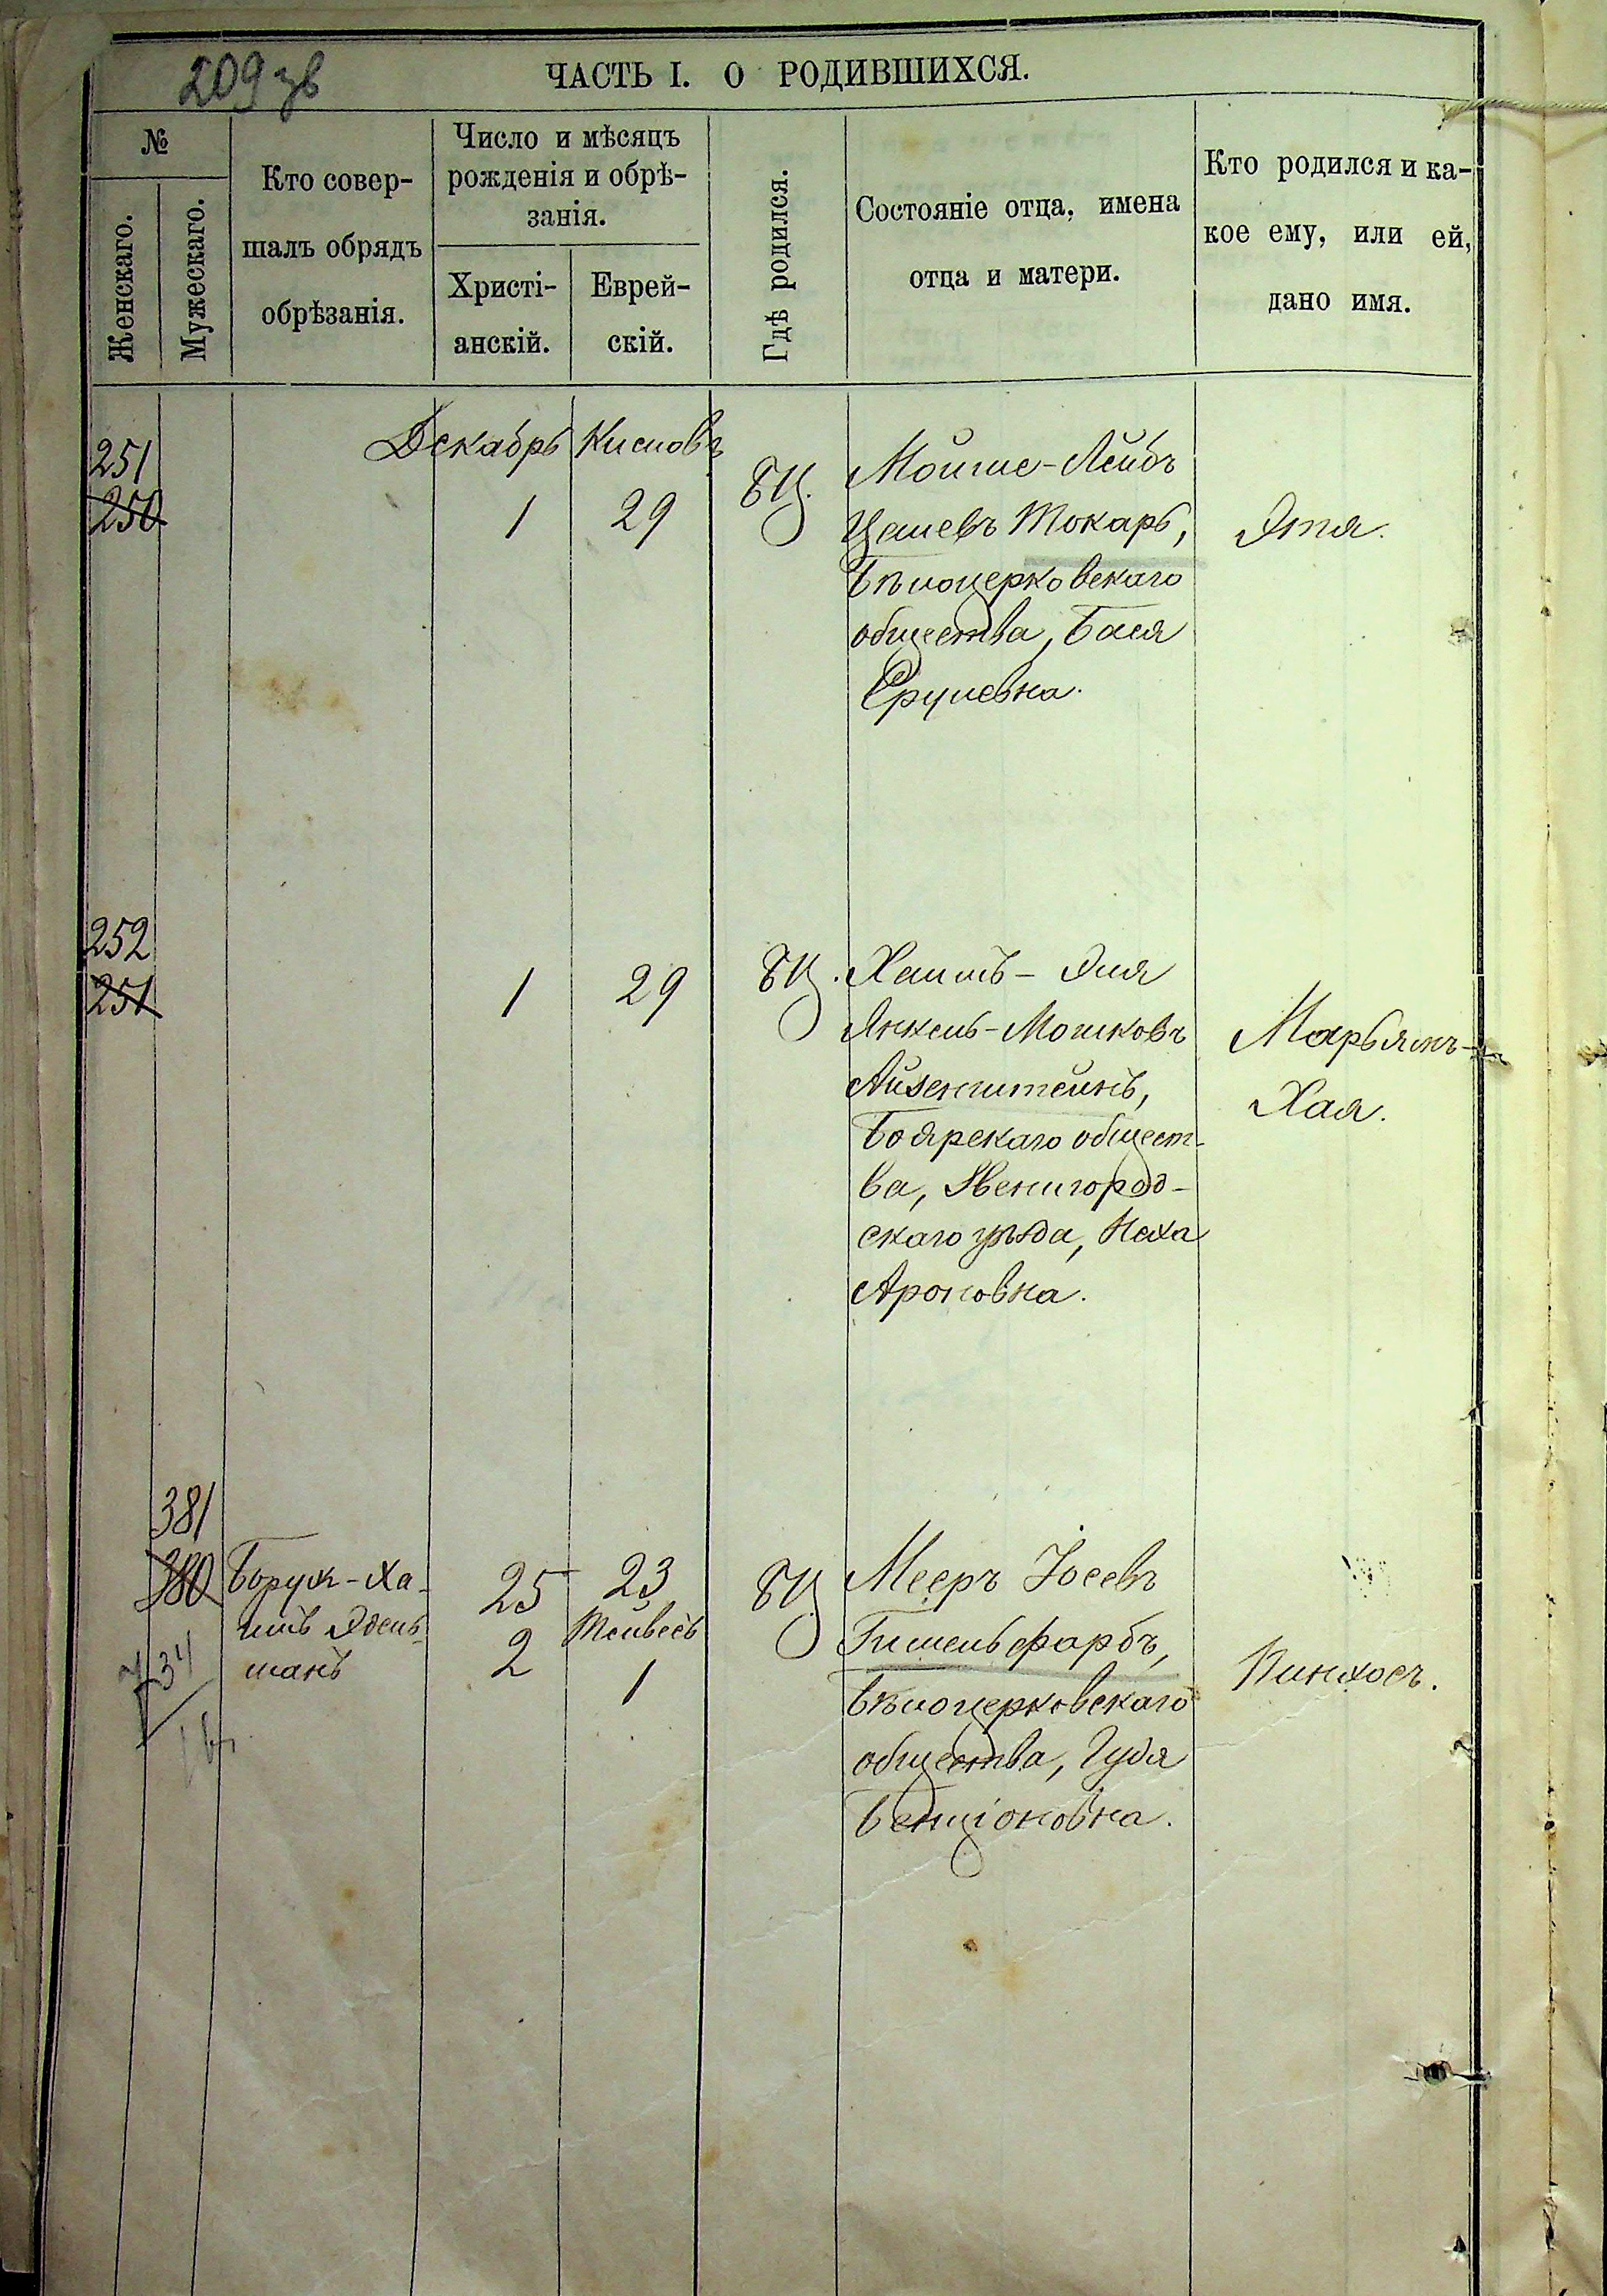 209 зв
ЧАСТЬ I. О РОДИВШИХСЯ.
№
Женскаго.
Мужескаго.
Кто совер-
шалъ обрядъ
обрѣзанія.
Число и мѣсяцъ
рожденія и обрѣ-
занія.
Христі-
анскій.
Еврей-
скій.
Гдѣ родился.
Состояніе отца, имена
отца и матери.
Кто родился и ка-
кое ему, или ей,
дано имя.
Декабрь Кисловъ
251
250
1 29
БЦ.
Мойше-Лейбъ
Токарь,
Бѣлоцерковскаго
общества, Бася
Срулевна.
Этя.
252
251
1 29
БЦ.
Хаимъ-Эля
Янкель-Мошковъ
Айзенштейнъ,
Боярскаго общест-
ва, Звенигород-
скаго уѣзда, Неха
Ароновна.
Марьямъ-
Хая.
381
380
Борух-Ха-
имъ Эдель-
манъ
25 23
Тейвесъ
2 1
БЦ
Мееръ Іосевъ
Гимельфарбъ,
Бѣлоцерковскаго
общества, Гудя
Бенціоновна.
Пинхосъ.